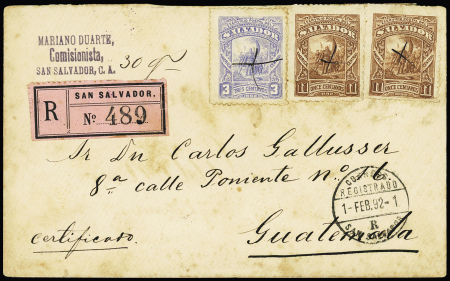 MARIANO DUARTE,
Comisionista,
SAN SALVADOR, C. A.
30 gr
SALVADOR
3 3
SALVADOR
11 ONCE CENTAVOS 11
SALVADOR
11 ONCE CENTAVOS 11
R SAN SALVADOR.
No 489
Sr Dn Carlos Gallusser
8ª calle Poniente no. 6
Guatemala
certificado.
CORREOS
REGISTRADO
1-FEB.92-1
R
SAN SALVADOR